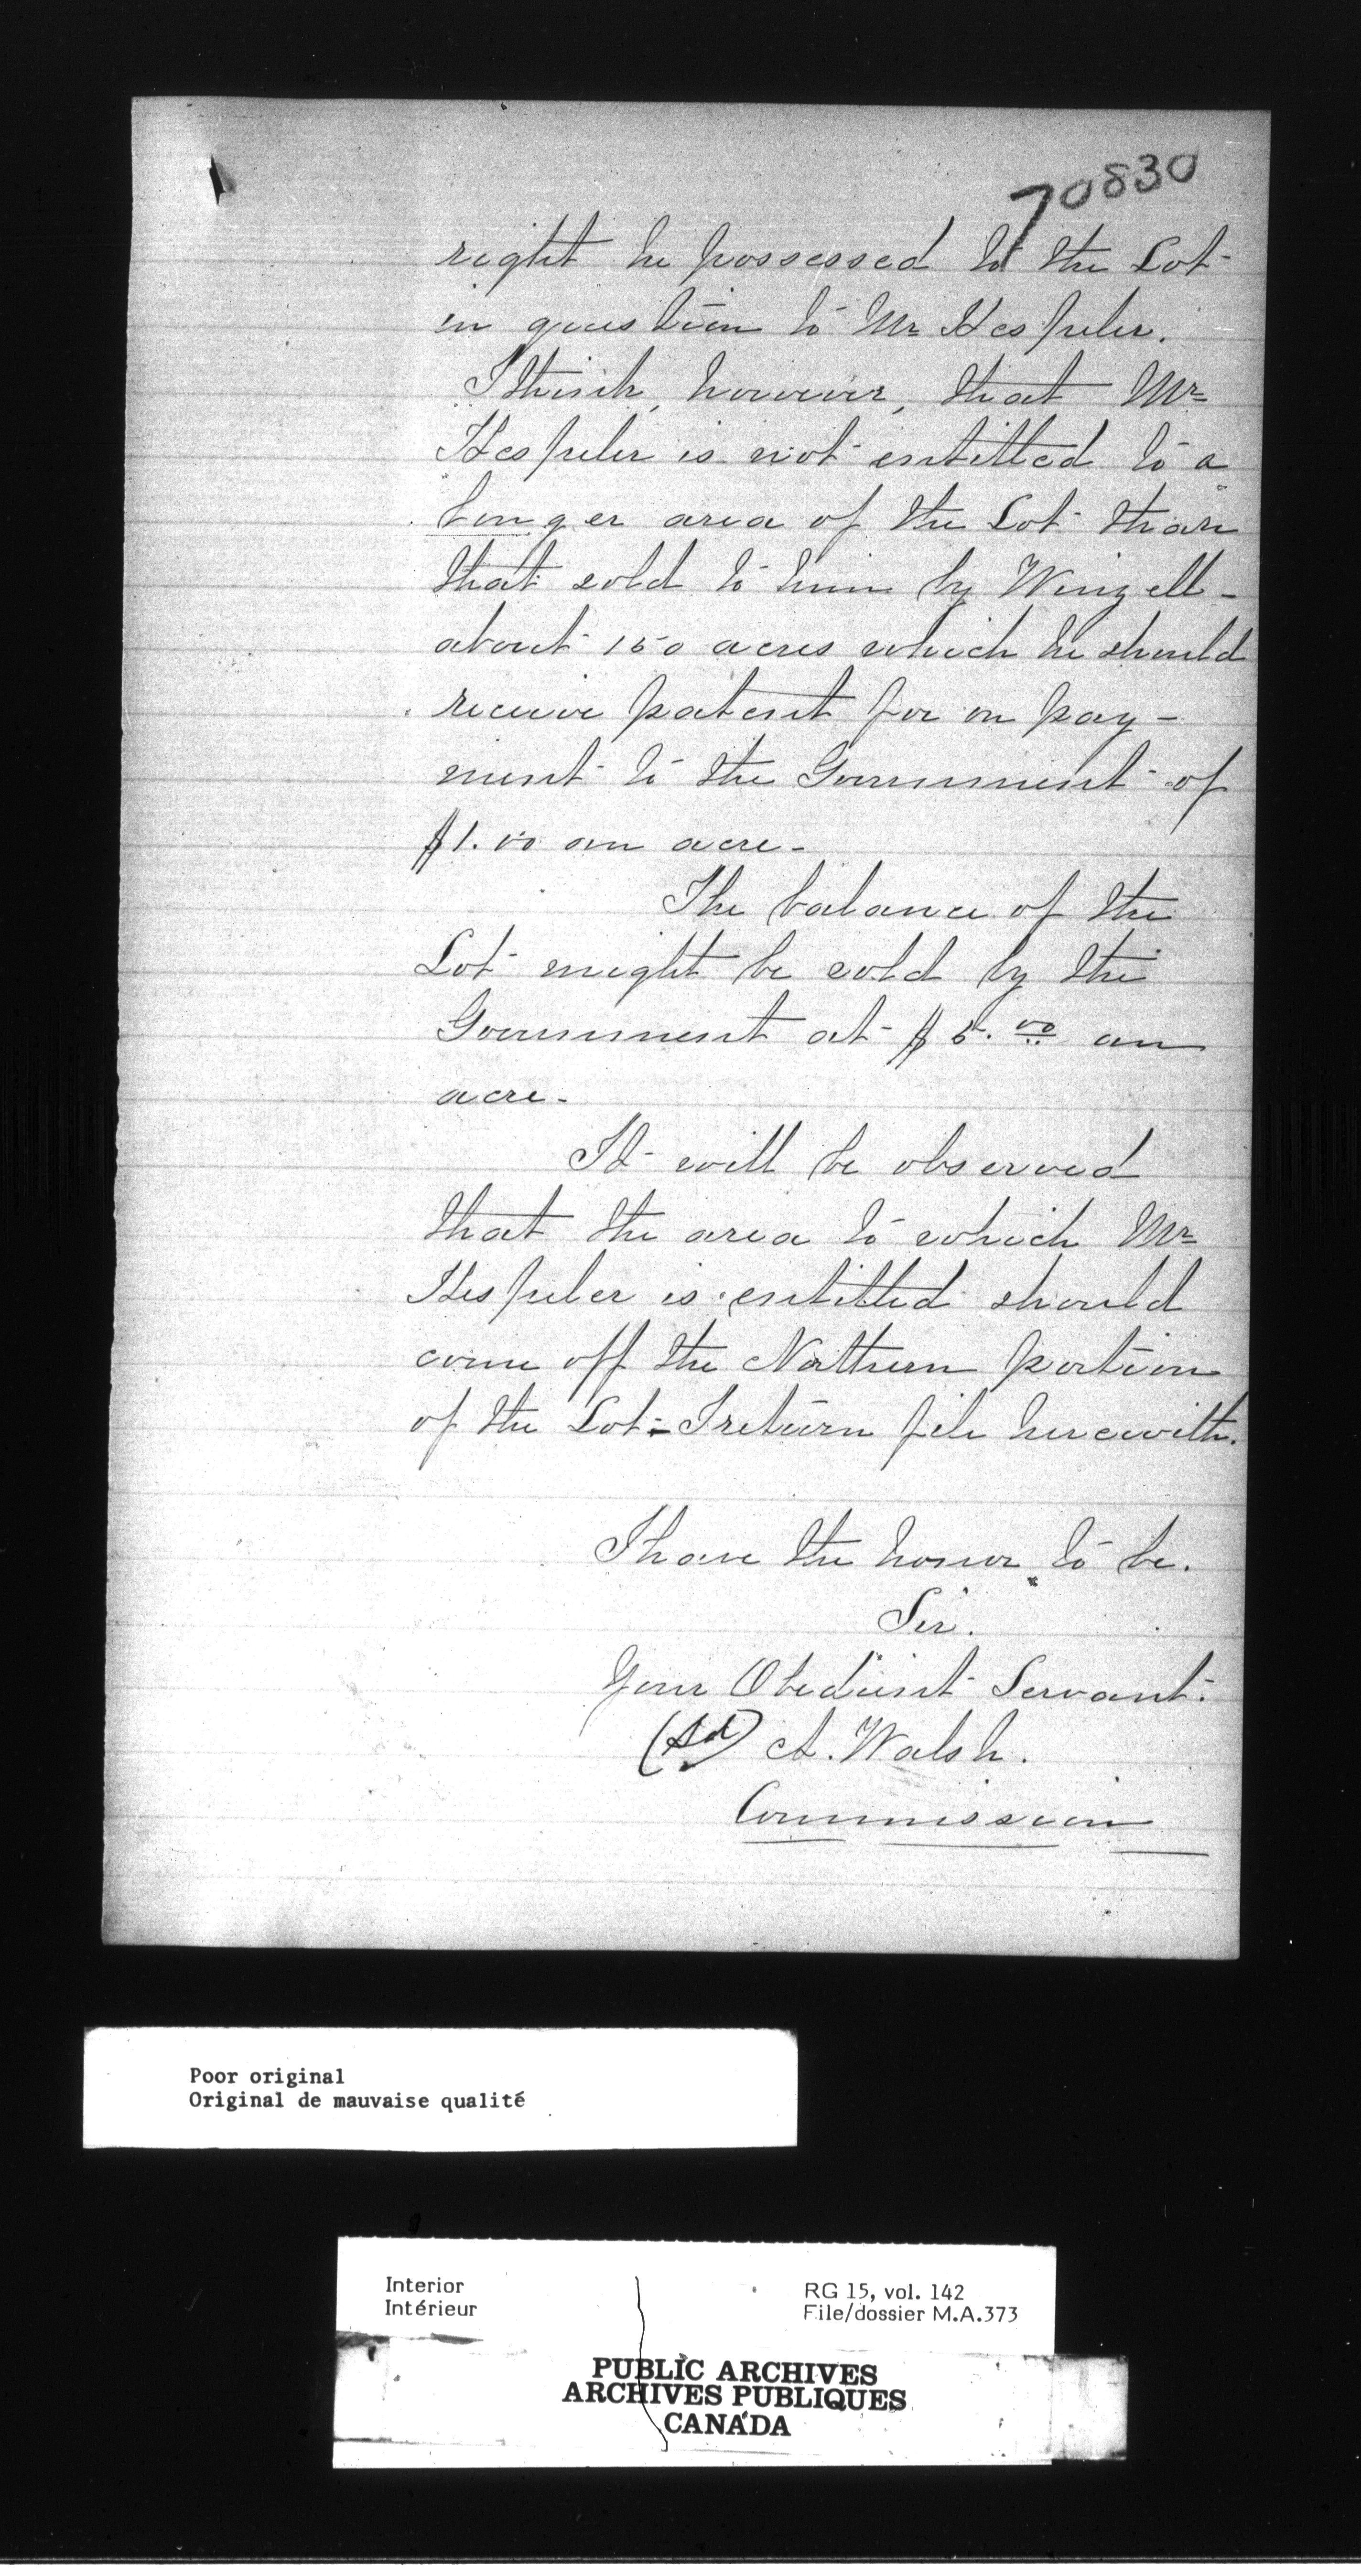 70830
right he possessed to the Lot
in question to Mr Hespeler.
I think, however, that Mr
Hespeler is not entitled to a
longer area of the Lot than
that sold to him by Wingell -
about 150 acres which he should
receive patent for on pay-
ment to the Government of
$1.00 an acre -
The balance of the
Lot might be sold by the
Government at $5.00 an
acre -
It will be observed
that the area to which Mr
Hespeler is entitled should
come off the Northern portion
of the Lot - I return file herewith.
I have the honor to be.
Sir.
Your Obedient Servant.
(sd) A. Walsh.
Commission
Poor original
Original de mauvaise qualité
Interior
Intérieur
RG 15, vol. 142
File/dossier M.A.373
PUBLIC ARCHIVES
ARCHIVES PUBLIQUES
CANADA